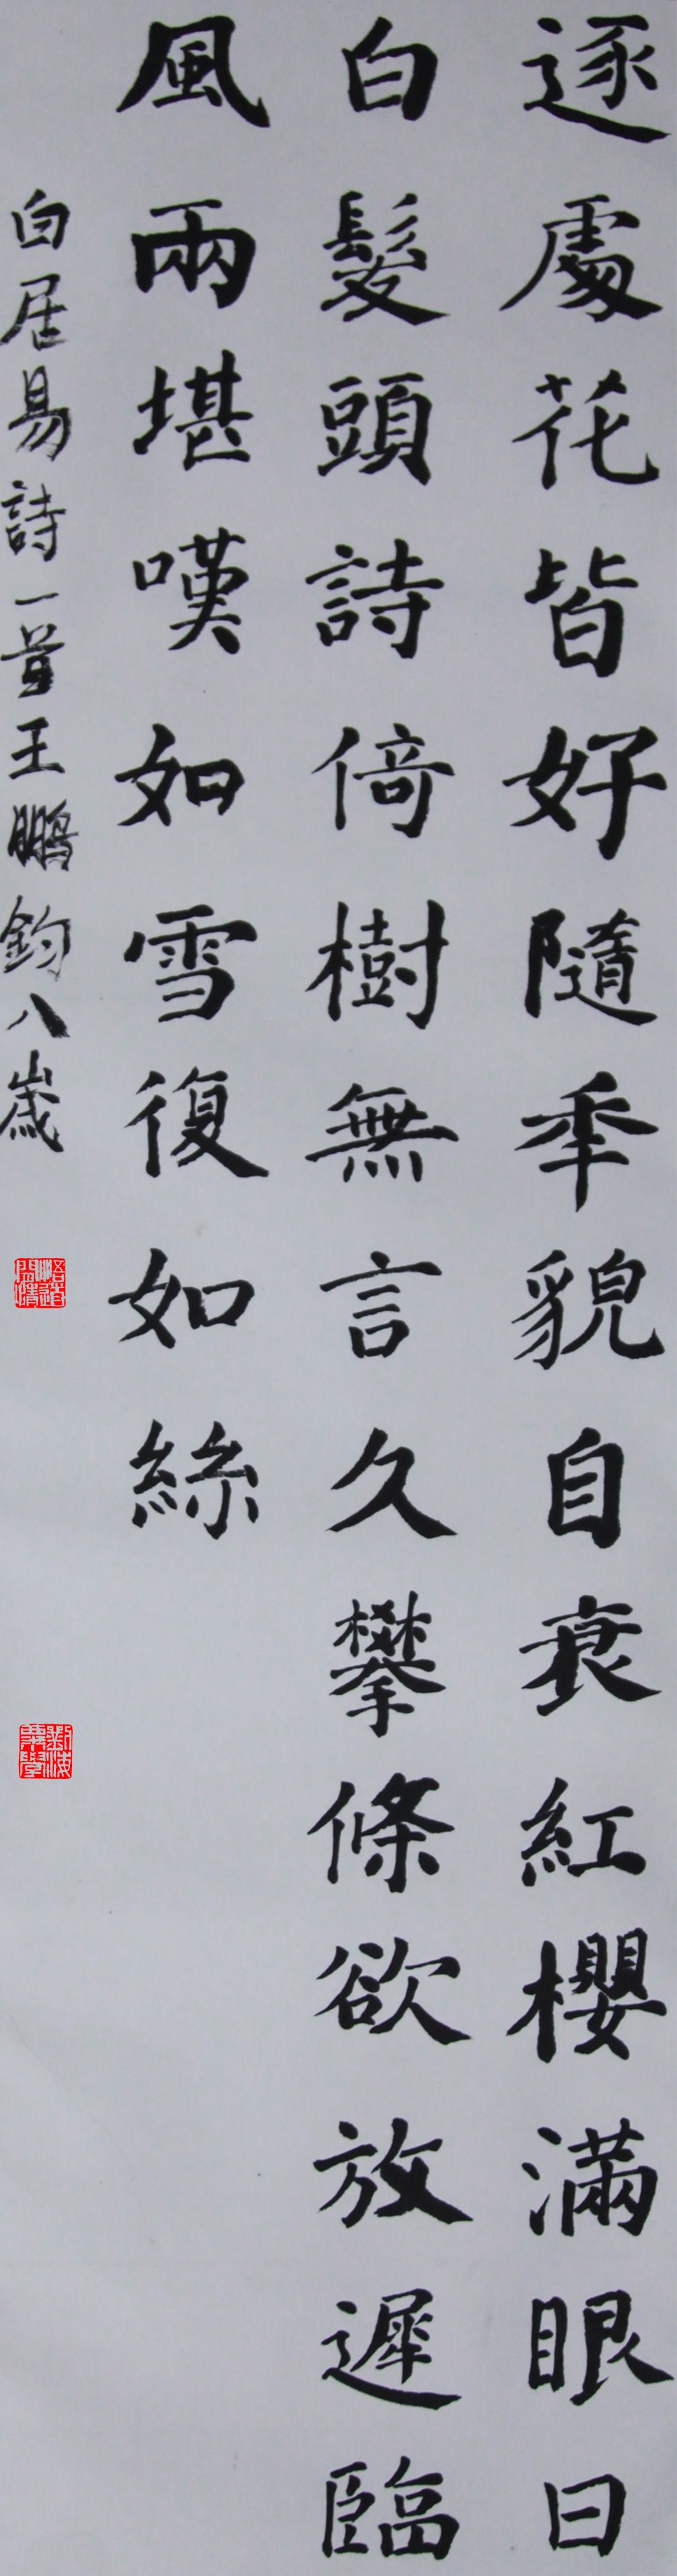 逐處花皆好隨秊貌自衰紅櫻滿眼日
白髮頭詩倚樹無言久攀條欲放遲臨
風兩堪嘆如雪復如絲
白居易詩一首王鵬鈞八歲